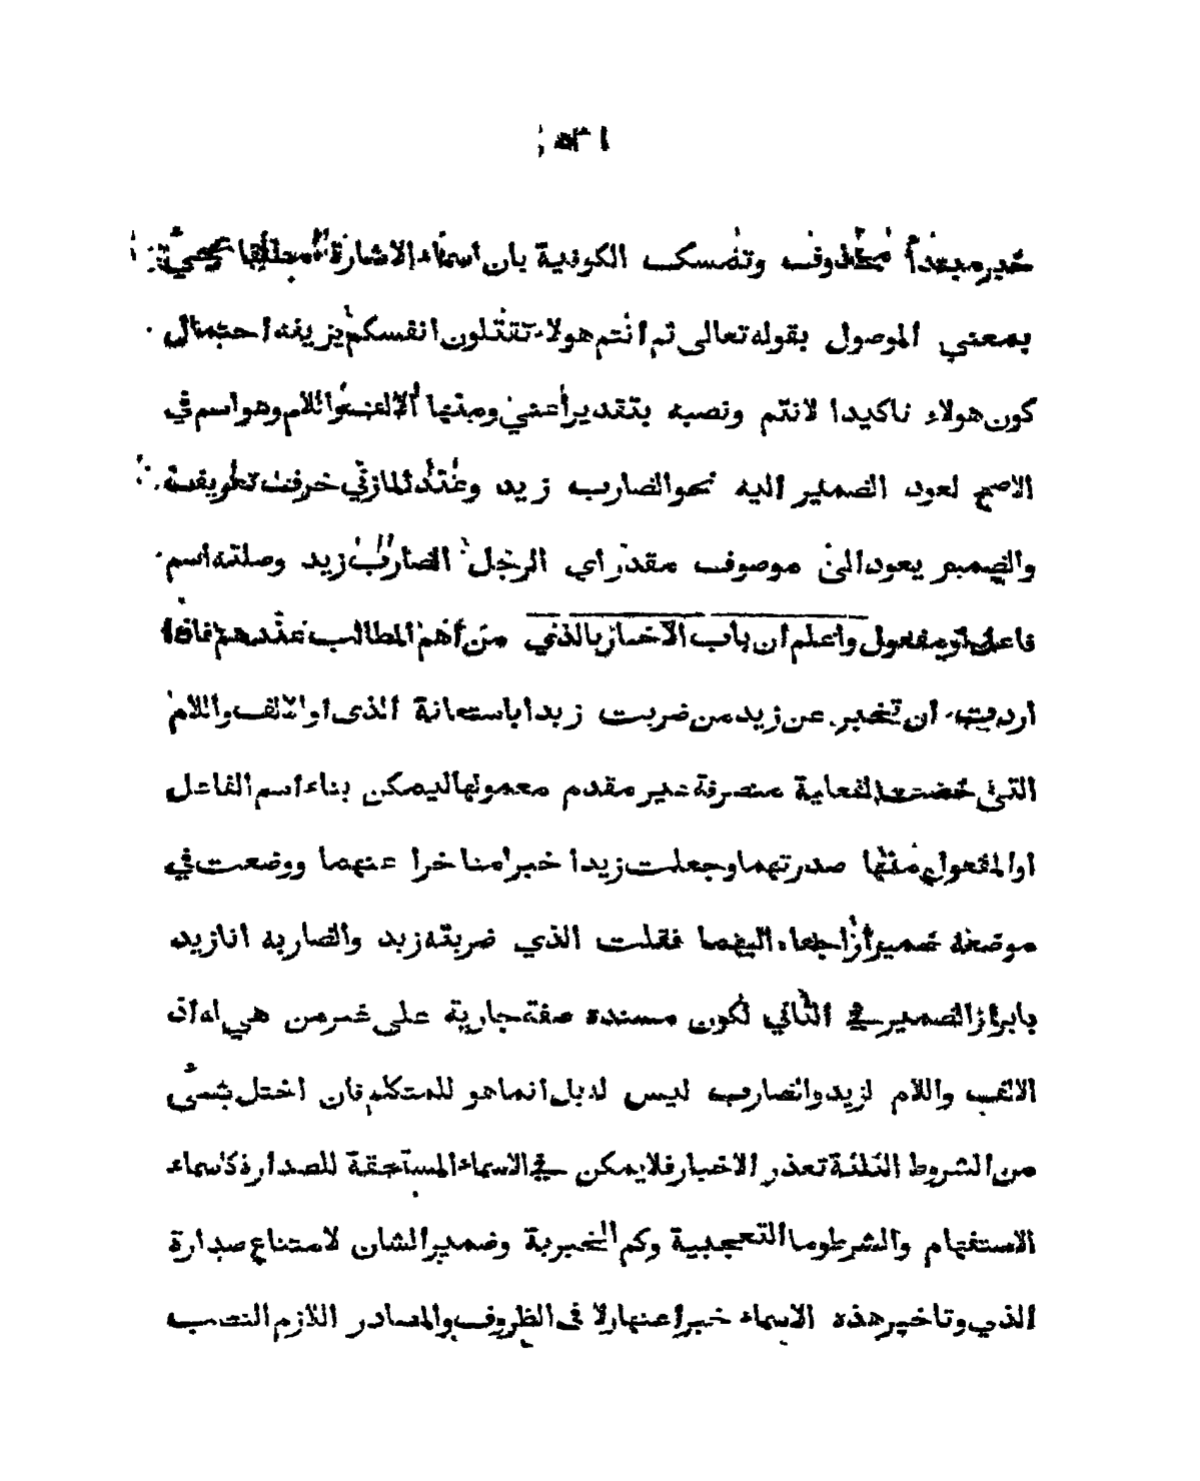 خبر مبتدأ محذوف وتمسك الكوفية بان اسماء الاشارة مطلقا تجيئ
بمعني الموصول بقوله تعالى ثم انتم هولاء تقتلون انفسكم يزيفه احتمال
كون هولاء تاكيدا لانتم ونصبه بتقدير أعني ومنها الالف واللام وهو اسم في
الاصح لعود الضمير اليه نحو الضارب زيد وعند المازني حرف تعريف
والضمير يعود الى موصوف مقدر اي الرجل الضارب زيد وصلته اسم
فاعل او مفعول واعلم ان باب الاخبار بالذي من أهم المطالب عندهم فاذا
اردت ان تخبر عن زيد من ضربت زيدا باستعانة الذى او الالف واللام
التى خصت بالفعلية متصرفة غير مقدم معمولها ليمكن بناء اسم الفاعل
او المفعول منها صدرتهما وجعلت زيدا خبرا متاخرا عنهما ووضعت في
موضعه ضميرا راجعا اليهما فقلت الذي ضربته زيد والضاربه انا زيد
بابراز الضمير في الثاني لكون مسنده صفة جارية على غير من هي له اذ
الالف واللام لزيد والضارب ليس له بل انما هو للمتكلم فان اختل بشئ
من الشروط الثلثة تعذر الاخبار فلا يمكن في الاسماء المستحقة للصدارة كاسماء
الاستفهام والشرط وما التعجبية وكم الخبرية وضمير الشان لامتناع صدارة
الذي وتاخير هذه الاسماء خبرا عنها ولا فى الظروف والمصادر اللازم النصب